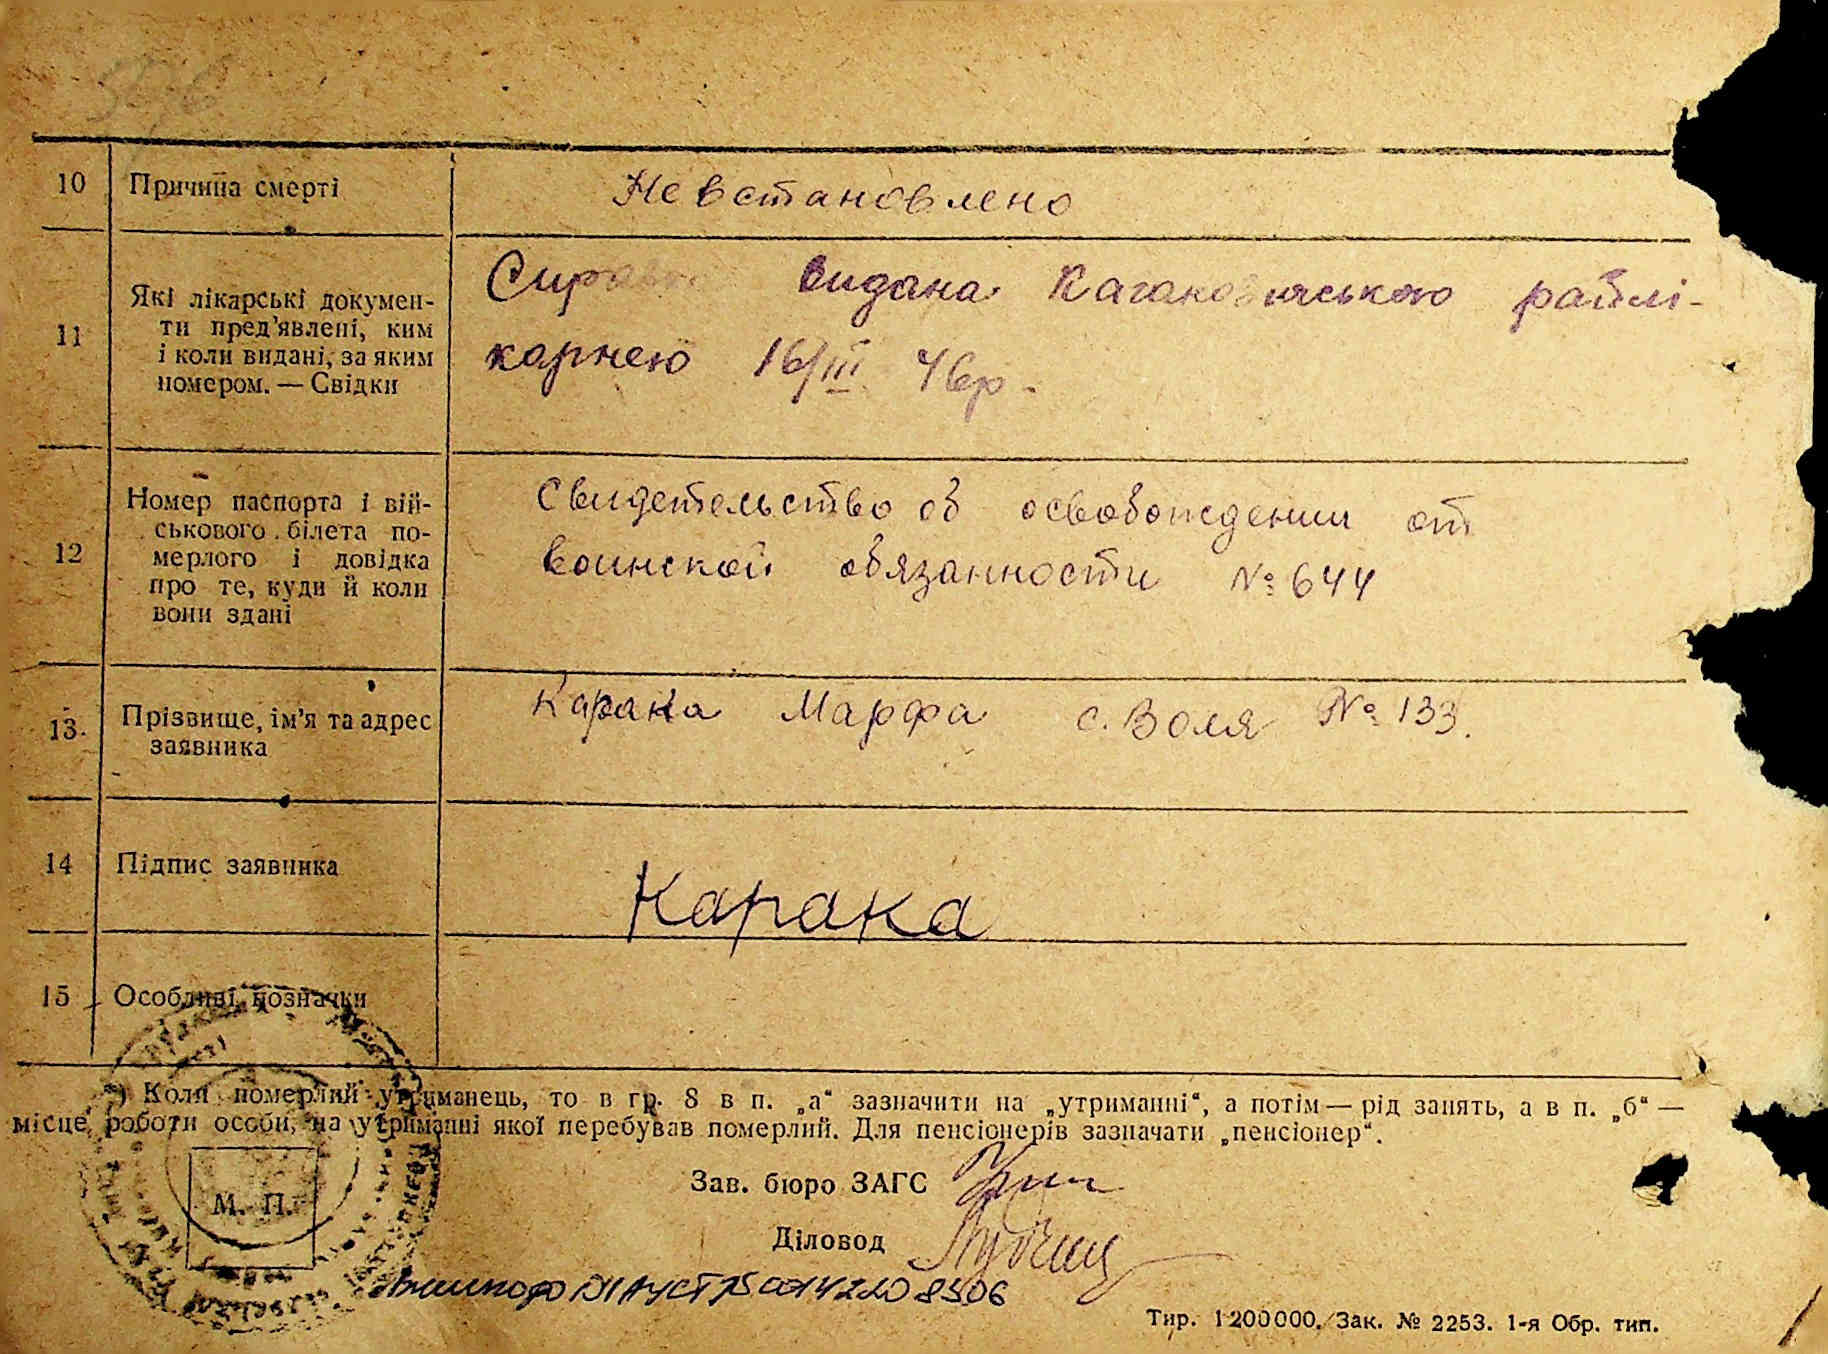 10 Причина смерті Не встановлено
11 Які лікарські докумен-
ти пред'явлені, ким
і коли видані, за яким
номером. — Свідки
Справка видана Кагановичською райлі-
карнею 16/III 46р.
12 Номер паспорта і вій-
ськового білета по-
мерлого і довідка
про те, куди й коли
вони здані
Свидетельство об освобождении от
воинской обязанности № 644
13. Прізвище, ім'я та адрес
заявника
Карака Марфа с. Воля № 133.
14 Підпис заявника Карака
15 Особливі позначки
*) Коли померлий утриманець, то в гр. 8 в п. „а“ зазначити на „утриманні“, а потім — рід занять, а в п. „б“ —
місце роботи особи, на утриманні якої перебував померлий. Для пенсіонерів зазначати „пенсіонер“.
Зав. бюро ЗАГС
М. П.
Діловод
Тир. 1200000. Зак. № 2253. 1-я Обр. тип.